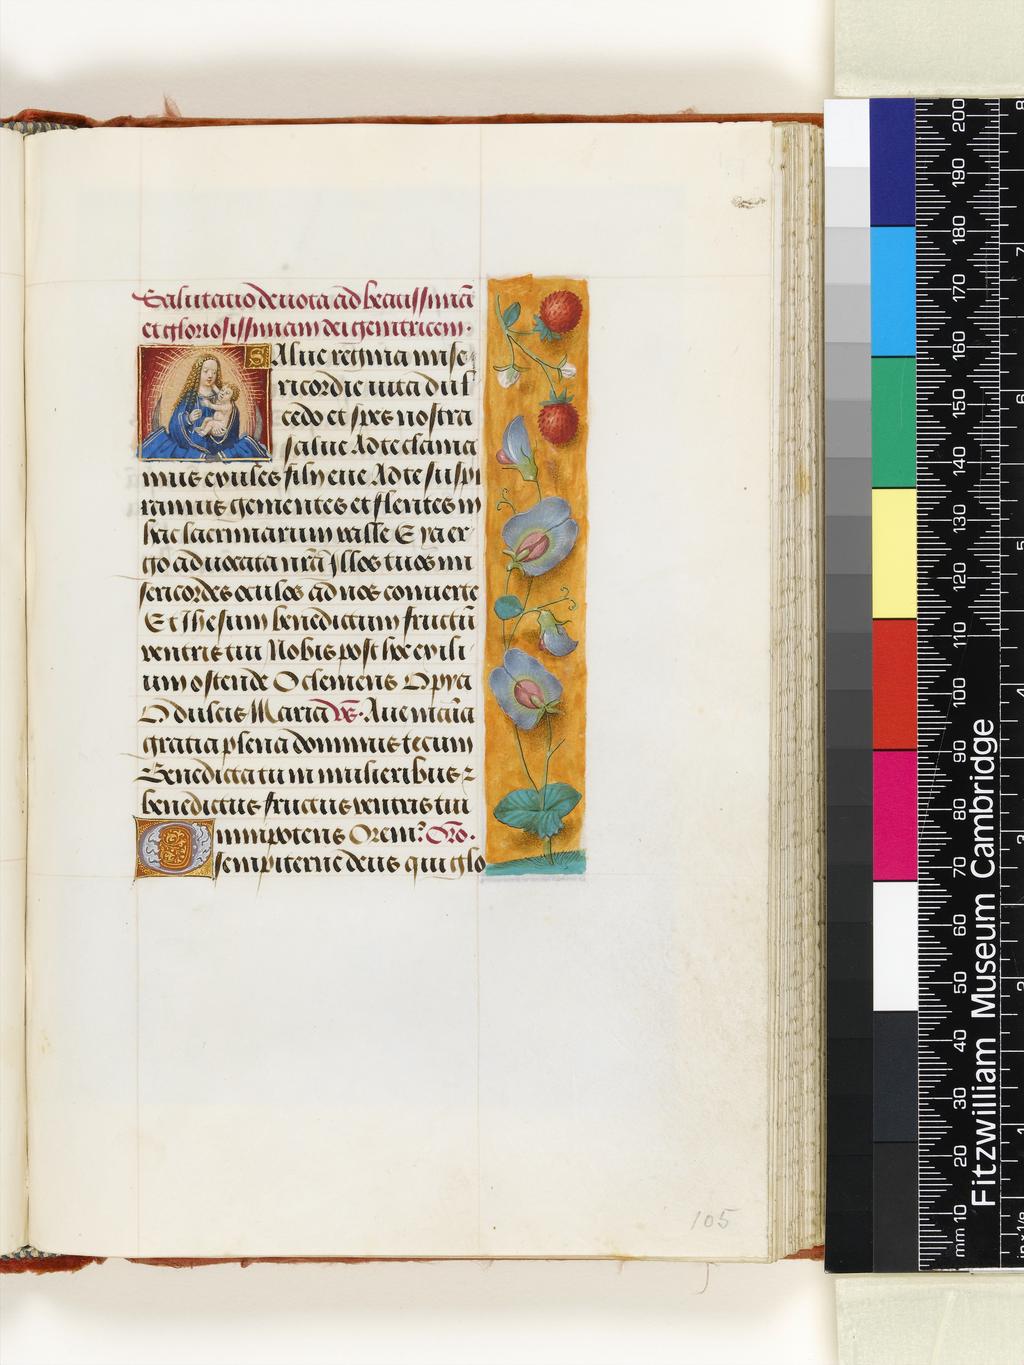 Salutatio deuota ad beatissimā
et gloriosissimam dei genitricem·
SAlue regina mise
ricordie uita dul
cedo et spes nostra
salue Ad te clama
mus exules filij eue Ad te suspi
ramus gementes et flentes in
hac lacrimarum valle Eya er
go aduocata nr̄a Illos tuos mi
sericordes oculos ad nos conuerte
Et Ihesum benedictum fructū
ventris tui Nobis post hoc exili
um ostende O clemens O pya
O dulcis Maria vs̄· Aue maria
gratia plena dominus tecum
Benedicta tu in mulieribus ꝛ
benedictus fructus ventris tui
Omnipotens Orem? Oro·
sempiterne deus qui glo
105
Fitzwilliam Museum Cambridge
mm 10 20 30 40 50 60 70 80 90 100 110 120 130 140 150 160 170 180 190 200
in x 1/8 1 2 3 4 5 6 7 8